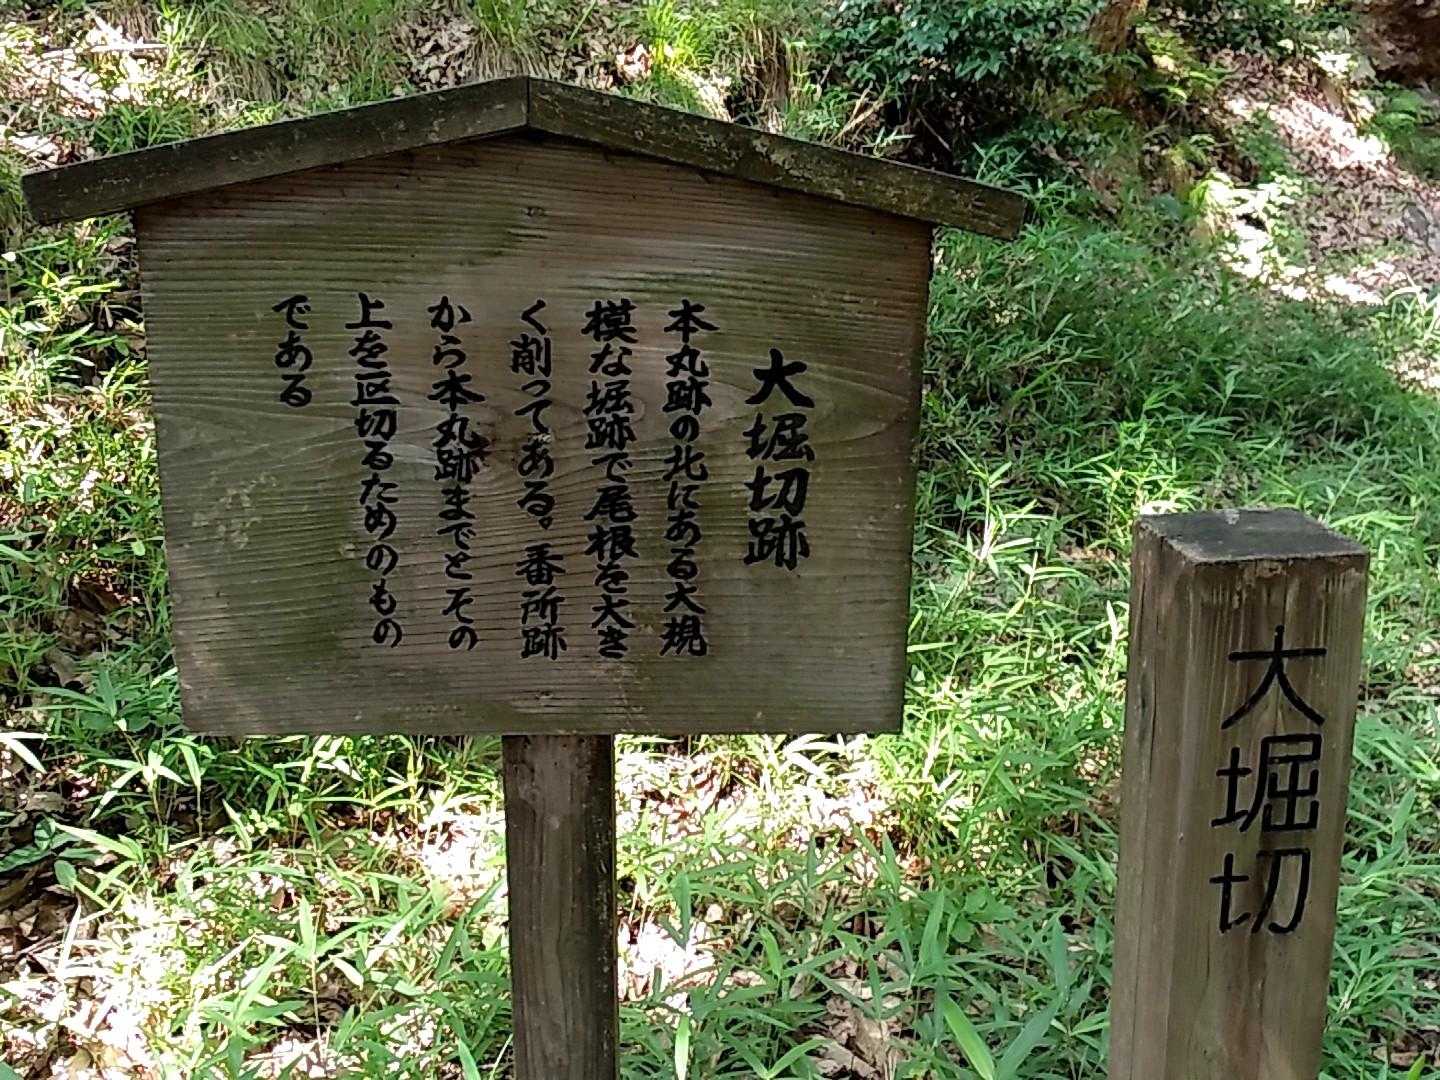 大堀切跡
本丸跡の北にある大規
模な堀跡で尾根を大き
く削ってある。番所跡
から本丸跡までとその
上を区切るためのもの
である
大堀切